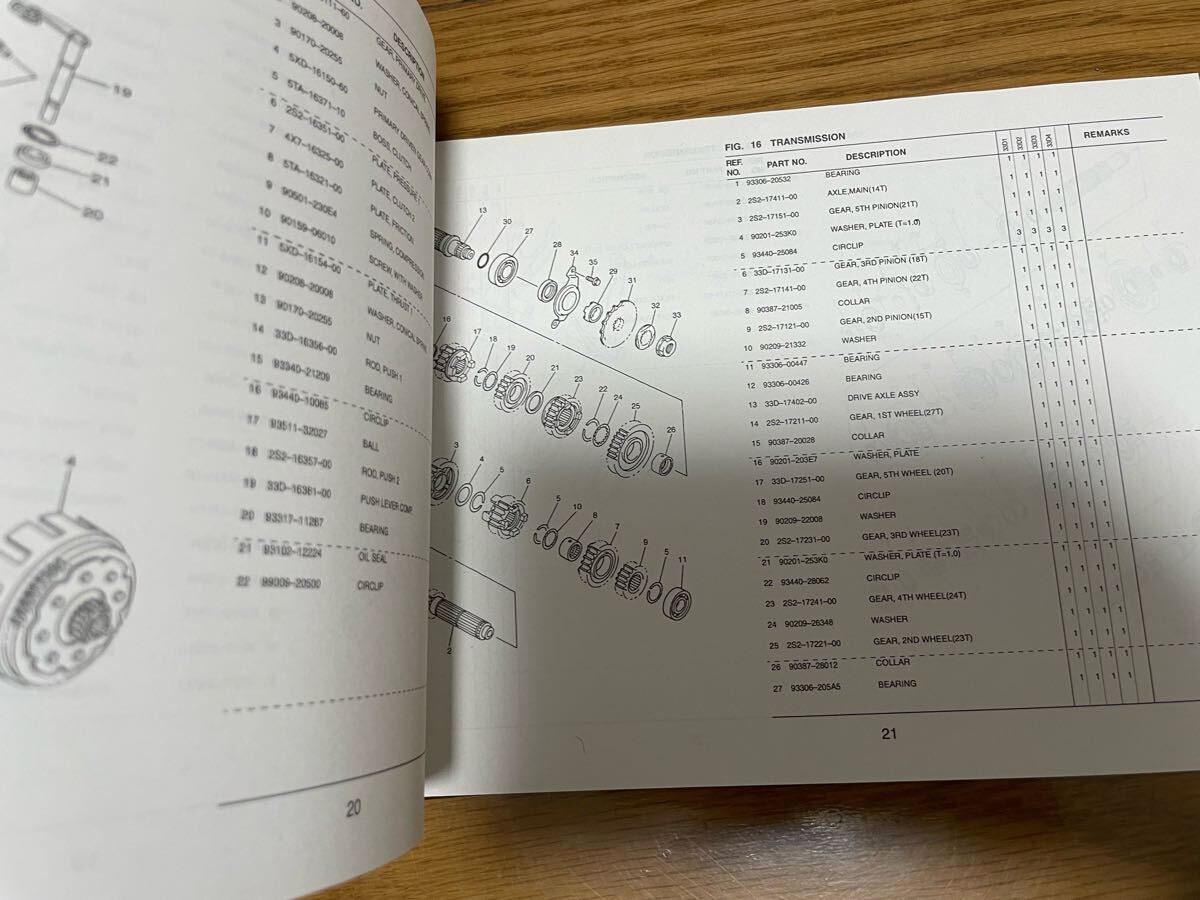 NO.
DESCRIPTION
1 11-60 GEAR, PRIMARY DRIVE
2 90208-20008 WASHER, CONICAL SPRING
3 90170-20255 NUT
4 5XD-16150-60 PRIMARY DRIVEN GEAR
5 5TA-16371-10 BOSS, CLUTCH
6 2S2-16351-00 PLATE, PRESSURE
7 4X7-16325-00 PLATE, CLUTCH 2
8 5TA-16321-00 PLATE, FRICTION
9 90501-230E4 SPRING, COMPRESSION
10 90159-06010 SCREW, WITH WASHER
11 5XD-16154-00 PLATE, THRUST 1
12 90208-20008 WASHER, CONICAL SPRING
13 90170-20255 NUT
14 33D-16356-00 ROD, PUSH 1
15 93340-21209 BEARING
16 93440-10085 CIRCLIP
17 93511-32027 BALL
18 2S2-16357-00 ROD, PUSH 2
19 33D-16381-00 PUSH LEVER COMP.
20 93317-11267 BEARING
21 93102-12224 OIL SEAL
22 99009-20500 CIRCLIP
19
22
21
20
4
20
FIG. 16 TRANSMISSION
REF. NO. PART NO. DESCRIPTION 33D1 33D2 33D3 33D4 REMARKS
1 93306-20532 BEARING 1 1 1 1
2 2S2-17411-00 AXLE,MAIN(14T) 1 1 1 1
3 2S2-17151-00 GEAR, 5TH PINION(21T) 1 1 1 1
4 90201-253K0 WASHER, PLATE (T=1.0) 1 1 1 1
5 93440-25084 CIRCLIP 3 3 3 3
6 33D-17131-00 GEAR, 3RD PINION (18T) 1 1 1 1
7 2S2-17141-00 GEAR, 4TH PINION (22T) 1 1 1 1
8 90387-21005 COLLAR 1 1 1 1
9 2S2-17121-00 GEAR, 2ND PINION(15T) 1 1 1 1
10 90209-21332 WASHER 1 1 1 1
11 93306-00447 BEARING 1 1 1 1
12 93306-00426 BEARING 1 1 1 1
13 33D-17402-00 DRIVE AXLE ASSY 1 1 1 1
14 2S2-17211-00 GEAR, 1ST WHEEL(27T) 1 1 1 1
15 90387-20028 COLLAR 1 1 1 1
16 90201-203E7 WASHER, PLATE 1 1 1 1
17 33D-17251-00 GEAR, 5TH WHEEL (20T) 1 1 1 1
18 93440-25084 CIRCLIP 1 1 1 1
19 90209-22008 WASHER 1 1 1 1
20 2S2-17231-00 GEAR, 3RD WHEEL(23T) 1 1 1 1
21 90201-253K0 WASHER, PLATE (T=1.0) 1 1 1 1
22 93440-28062 CIRCLIP 1 1 1 1
23 2S2-17241-00 GEAR, 4TH WHEEL(24T) 1 1 1 1
24 90209-26348 WASHER 1 1 1 1
25 2S2-17221-00 GEAR, 2ND WHEEL(23T) 1 1 1 1
26 90387-28012 COLLAR 1 1 1 1
27 93306-205A5 BEARING 1 1 1 1
13 30 27 28 34 35 29 31 32 33
16 17 18 19 20 21 23 22 24 25 26
3 4 5 6 5 10 8 7 9 5 11
2
21